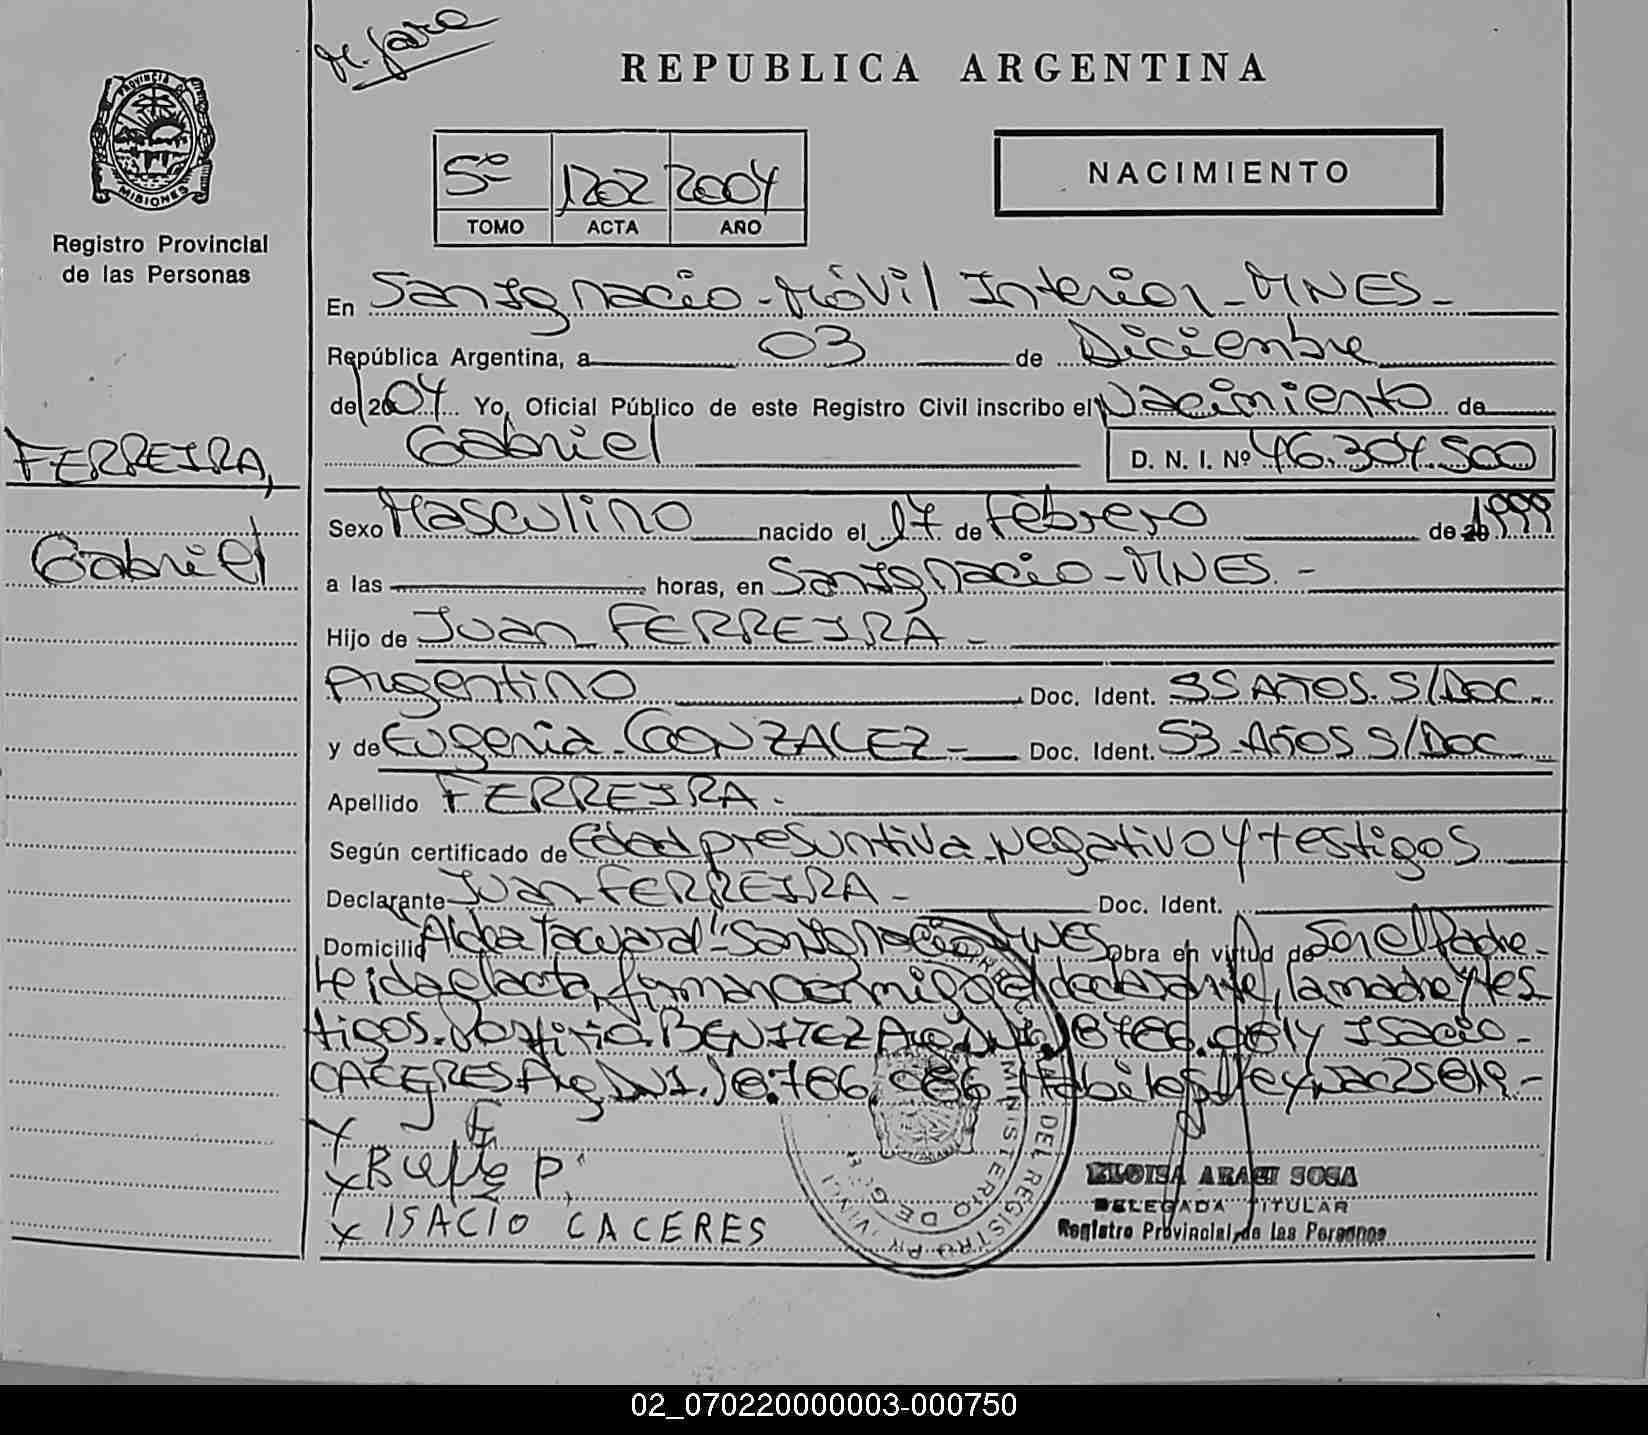 REPUBLICA ARGENTINA
PROVINCIA DE MISIONES
Registro Provincial
de las Personas
5º 1202 2004
TOMO ACTA AÑO
NACIMIENTO
En San Ignacio - Móvil Interior - MNES -
República Argentina, a 03 de Diciembre
del 2004 Yo, Oficial Público de este Registro Civil inscribo el Nacimiento de
Gabriel D. N. I. Nº 46.304.500
FERREIRA,
Gabriel
Sexo Masculino nacido el 17 de Febrero de 1999
a las horas, en San Ignacio - MNES. -
Hijo de Juan FERREIRA -
Argentino Doc. Ident. 55 AÑOS. S/DOC.
y de Eugenia GONZALEZ - Doc. Ident. 53 AÑOS S/DOC
Apellido FERREIRA -
Según certificado de Edad presuntiva, negativo y testigos
Declarante Juan FERREIRA - Doc. Ident.
Domicilio Aldea Tacuaral" San Ignacio MNES Obra en virtud de Ser el Padre -
Leida el acta, firman conmigo el declarante, la madre y tes
tigos. Porfiria BENITEZ Arg. DNI. y Isacio -
CACERES Arg. DNI. 18.766. Habiles
x ISACIO CACERES
ELOISA ARACI SOSA
DELEGADA TITULAR
Registro Provincial de las Personas
02_070220000003-000750